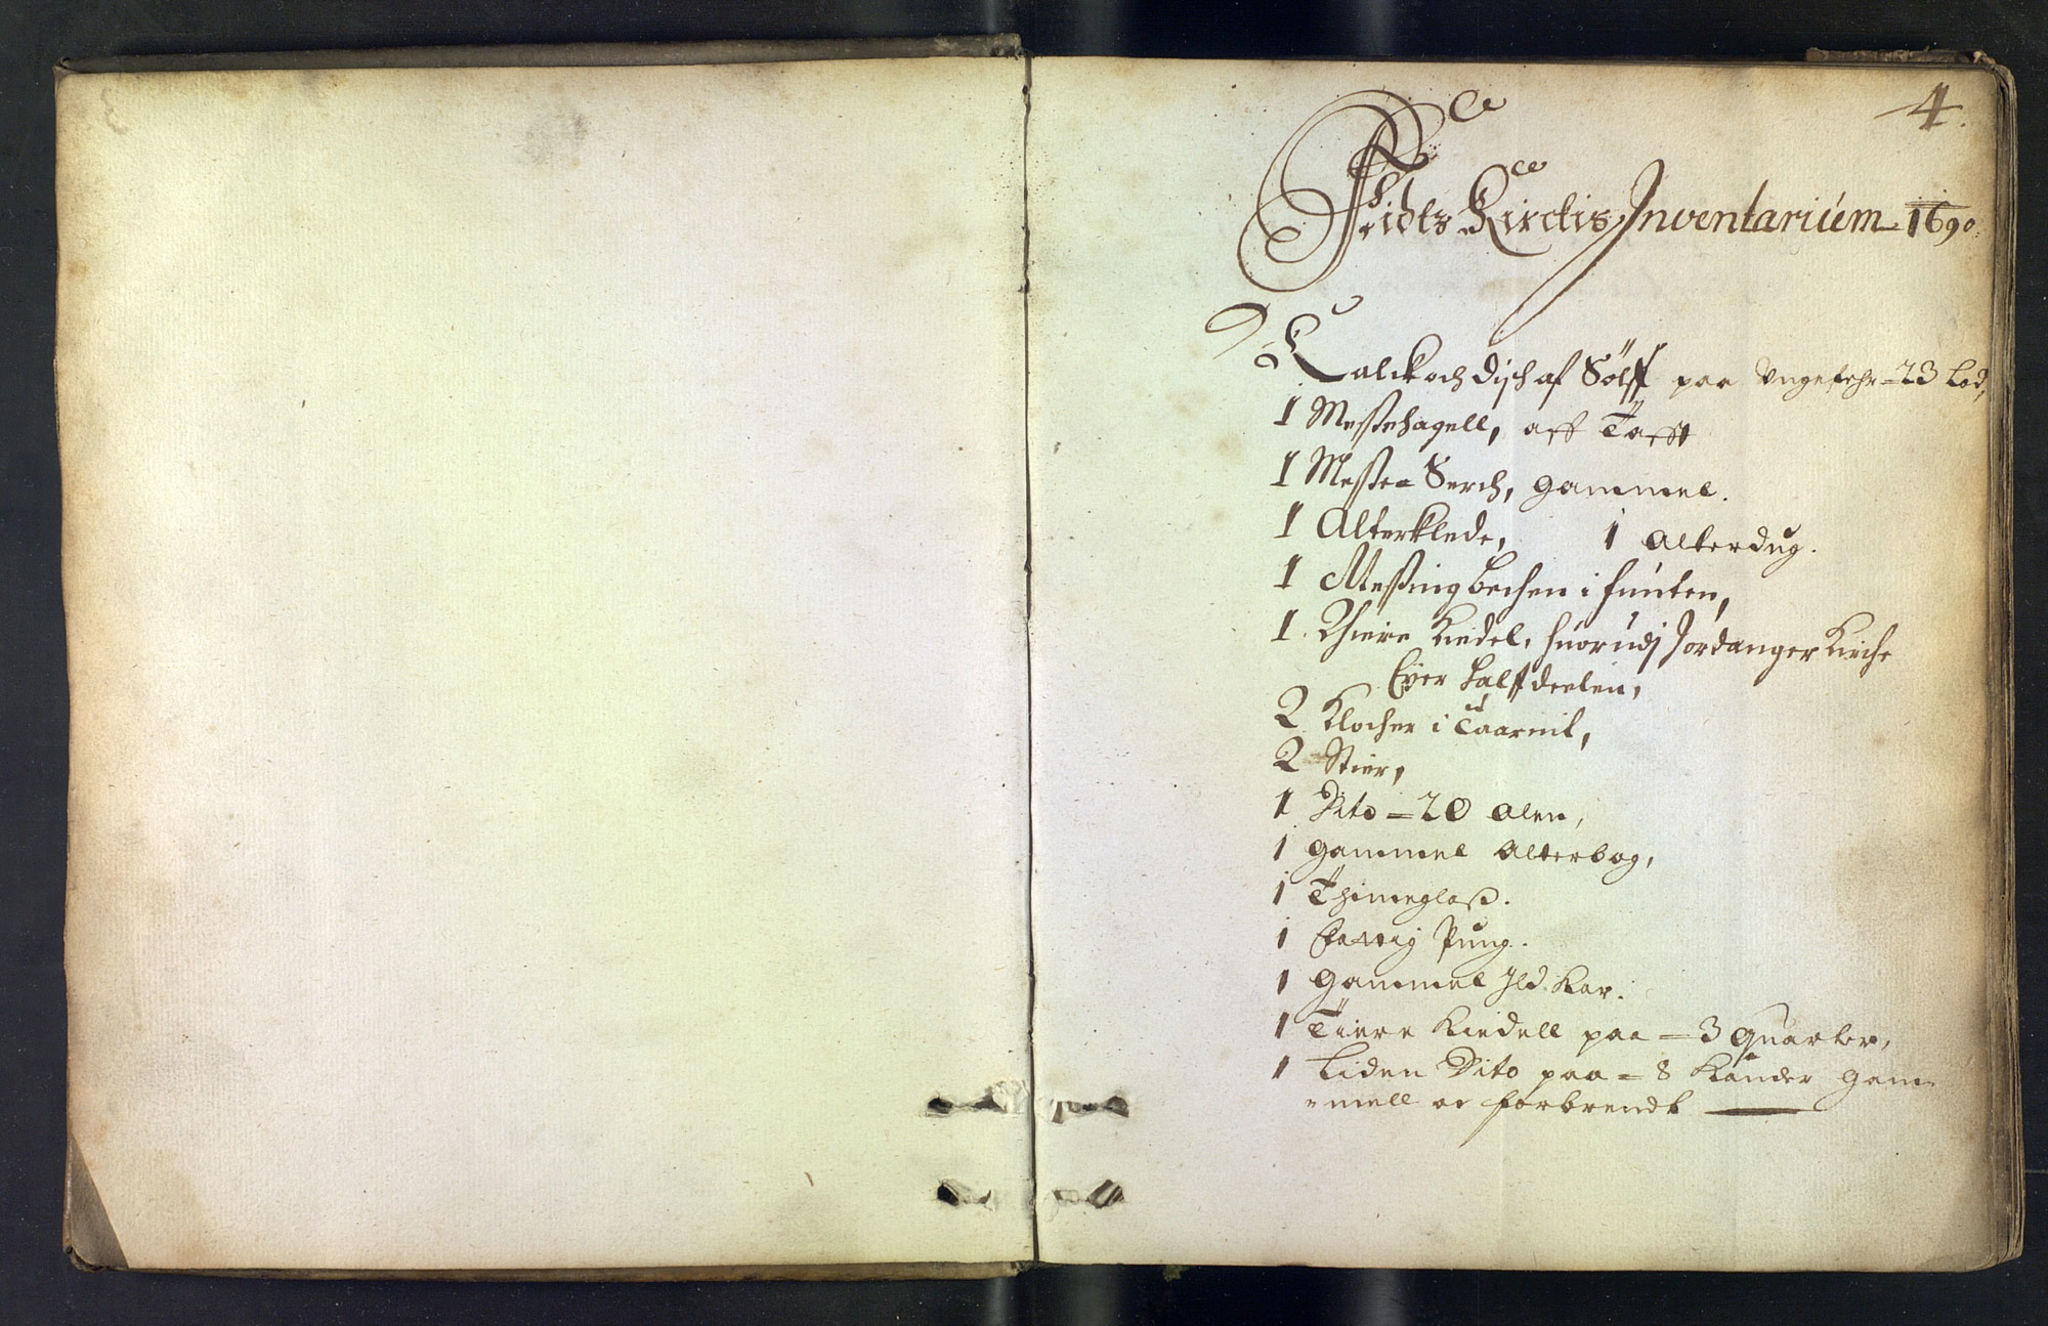 4.
Feidts Kirckis Inventarium 1690
Kalck och disch af Sölff paa Ungefehr = 23 Lod,
1 Messehagell, aff Tafft
1 Messe = Serch, gammel.
1 Alterklede, 1 Alterdug.
1 Messing bechen i funten,
1 Thiere Kiedel, huorudj Jordanger Kirche
Eyer halffdeelen,
2 Klocher i Taarnit,
2 Stier,
1 Dito = 20 Alen,
1 gammel Alterbog,
1 Thimeglass.
1 Pung.
1 gammel Ild Kar.
1 Tiere Kiedell paa = 3 quarter,
1 Liden Dito paa = 8 Kander gam=
=mell oc forbrendt